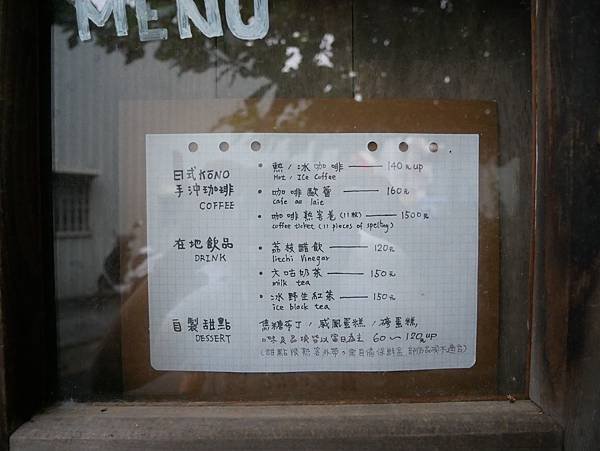 MENU
日式KONO
手沖珈琲
COFFEE
• 熱/冰咖啡 140元up
Hot / Ice Coffee
• 咖啡歐蕾 160元
cafe au laie
• 咖啡熟客卷(11杯) 1500元
coffee ticket (11 pieces of spelting)
在地飲品
DRINK
• 荔枝醋飲 120元
litchi Vinegar
• 大咕奶茶 150元
milk tea
• 冰野生紅茶 150元
ice black tea
自製甜點
DESSERT
焦糖布丁/戚風蛋糕/磅蛋糕,
口味及品項皆以當日為主 60~120元up
(甜點限熟客外帶。需自備保鮮盒